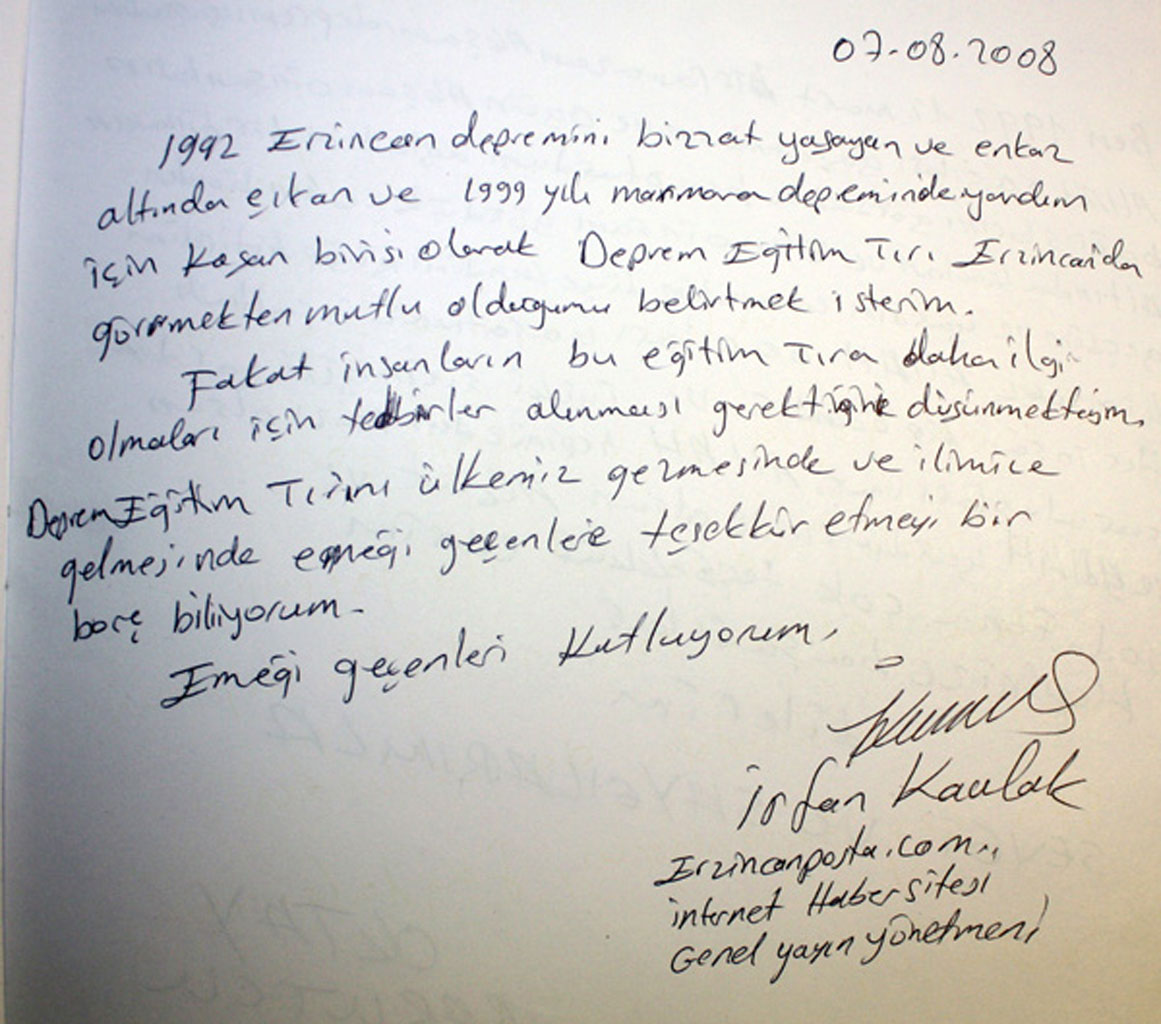 07-08-2008
1992 Erzincan depremini bizzat yaşayan ve enkaz
altında çıkan ve 1999 yılı marmara depreminde yardım
için koşan birisi olarak Deprem Eğitim Tırı Erzincan'da
görmekten mutlu olduğumu belirtmek isterim.
Fakat insanların bu eğitim Tıra daha ilgi
olmaları için tedbirler alınması gerektiğine düşünmekteyim.
Deprem Eğitim Tırını ülkemiz gezmesinde ve ilimize
gelmesinde emeği geçenlere teşekkür etmeyi bir
borç biliyorum.
Emeği geçenleri Kutluyorum.
İrfan
Erzincanposta.com..
internet Haber sitesi
Genel yayın yönetmeni